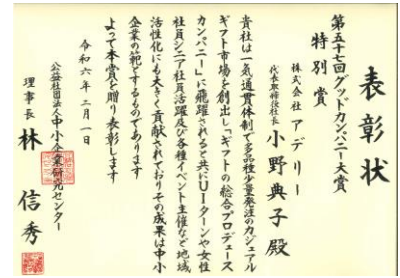 表彰状
第五十七回グッドカンパニー大賞
特別賞
株式会社 アデリー
代表取締役社長 小野典子殿
貴社は一気通貫体制で多品種少量発注のカジュアル
ギフト市場を創出し「ギフトの総合プロデュース
カンパニー」に飛躍されると共にUIターンや女性
社員シニア社員活躍及び各種イベント主催など地域
活性化にも大きく貢献されておりその成果は中小
企業の範とするものであります
よって本賞を贈り表彰します
令和六年二月一日
公益社団法人中小企業研究センター
理事長 林信秀